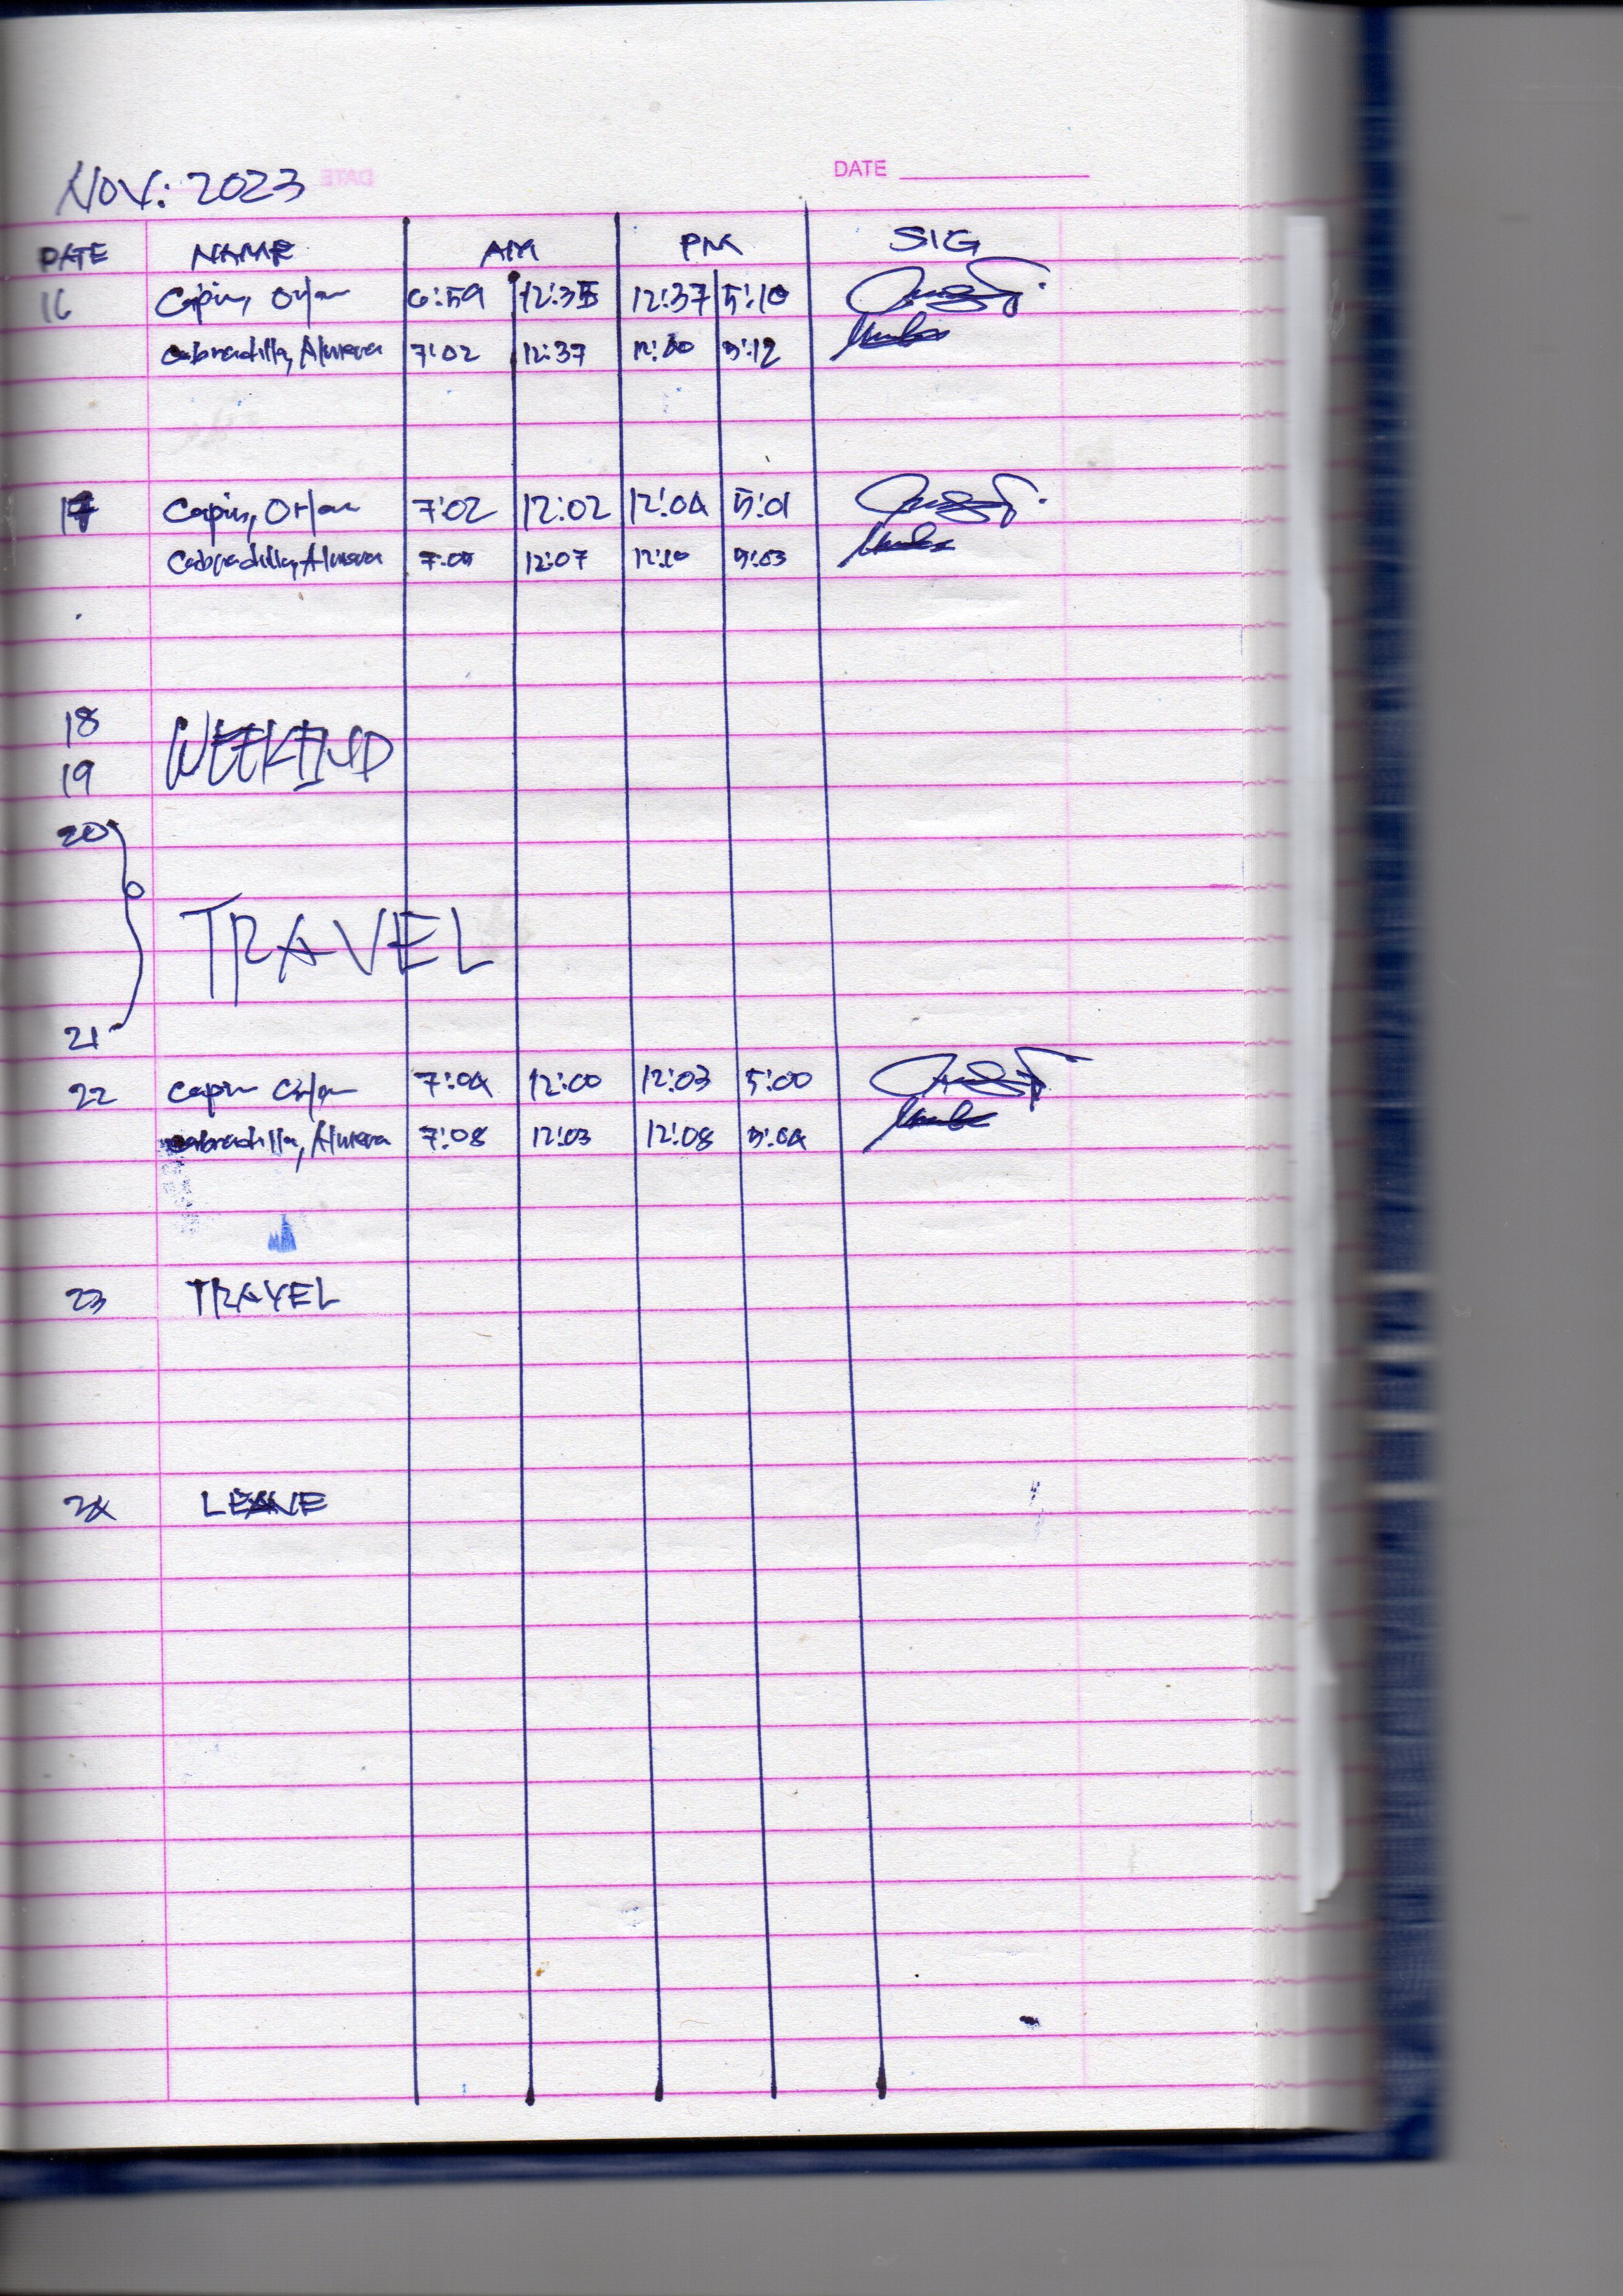 NOV. 2023
DATE
DATE NAME AM PM SIG
16 Capin, Orlan 6:59 12:35 12:37 5:10
Cabradilla, Almera 7:02 12:37 5:12
17 Capin, Orlan 7:02 12:02 12:04 5:01
Cabradilla, Almera 12:07 12:10 5:03
18
WEEKEND
19
20
TRAVEL
21
22 Capin Orlan 7:04 12:00 12:03 5:00
Cabradilla, Almera 7:08 12:03 12:08 5:04
23 TRAVEL
24 LEAVE